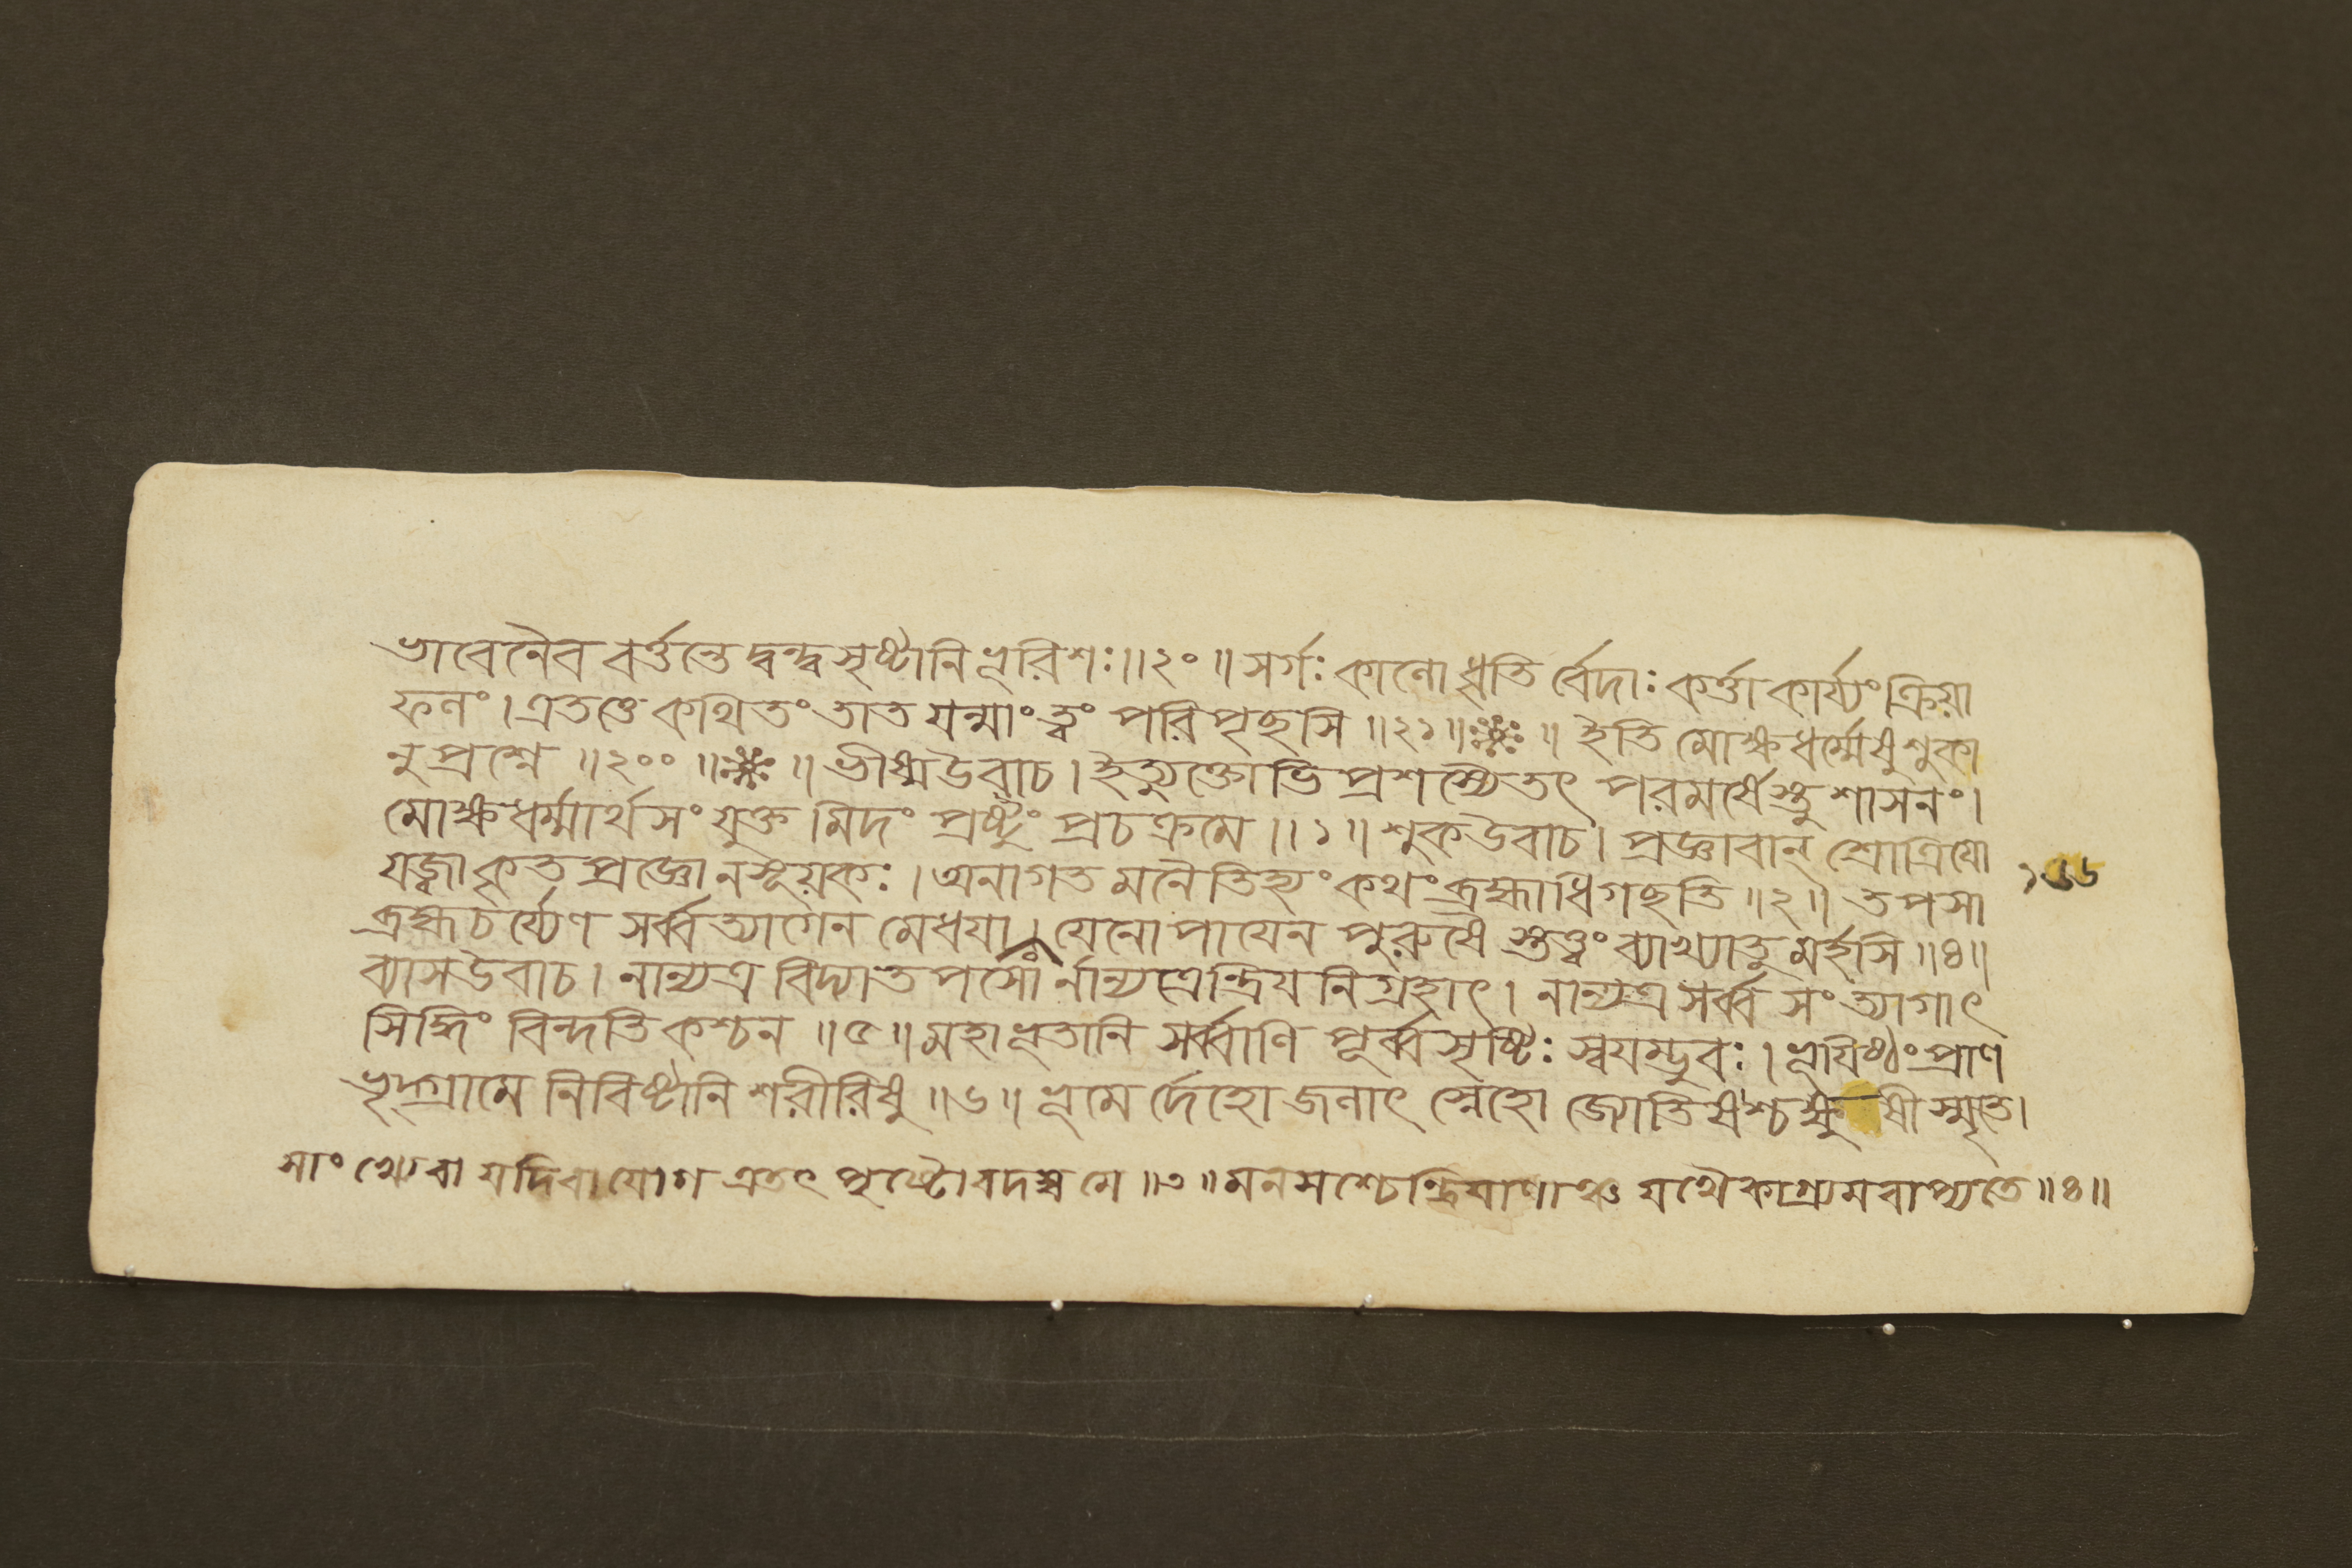 ভাবেনৈব বর্ত্তন্তে দ্বন্দ্বসৃষ্টানি ভূরিশঃ॥২০॥ সর্গঃ কালো ধৃতি র্বেদাঃ কর্ত্তা কার্য্যং ক্রিয়া
ফলং। এতত্তে কথিতং তাত যন্মাং ত্বং পরিপৃছসি॥২১॥❈॥ ইতি মোক্ষধর্ম্মেষু শুকা
নুপ্রশ্নে॥২০০॥❈॥ ভীষ্মউবাচ। ইত্যুক্তোভিপ্রশস্যৈতৎ পরমর্ষেস্তু শাসনং।
মোক্ষধর্ম্মার্থসংযুক্তমিদং প্রষ্টুং প্রচক্রমে॥১॥ শুকউবাচ। প্রজ্ঞাবান্ শ্রোত্রিয়ো
যজ্বা কৃতপ্রজ্ঞোনসূয়কঃ। অনাগতমনৈতিহ্যং কথং ব্রহ্মাধিগছতি॥২॥ তপসা
ব্রহ্মচর্য্যেণ সর্ব্বত্যাগেন মেধয়া। যেনোপায়েন পুরুষৈস্তত্ত্বং ব্যাখ্যাতুমর্হসি॥৪॥
ব্যাসউবাচ। নান্যত্র বিদ্যাতপসোর্নান্যত্রেন্দ্রিয়নিগ্রহাৎ। নান্যত্র সর্ব্বসংত্যাগাৎ
সিদ্ধিং বিন্দতি কশ্চন॥৫॥ মহাভূতানি সর্ব্বাণি পূর্ব্বসৃষ্টিঃ স্বয়ম্ভুবঃ। ভূয়িষ্ঠং প্রাণ
ভৃদ্গ্রামে নিবিষ্টানি শরীরিষু॥৬॥ ভূমের্দেহো জলাৎ স্নেহো জ্যোতিষশ্চক্ষুষী স্মৃতে।
সাংখ্যেবা যদিবা যোগ এতৎ পৃষ্টোবদস্ব মে॥৩॥ মনসশ্চেন্দ্রিয়াণাঞ্চ যথৈকাগ্র্যমবাপ্যতে॥৪॥